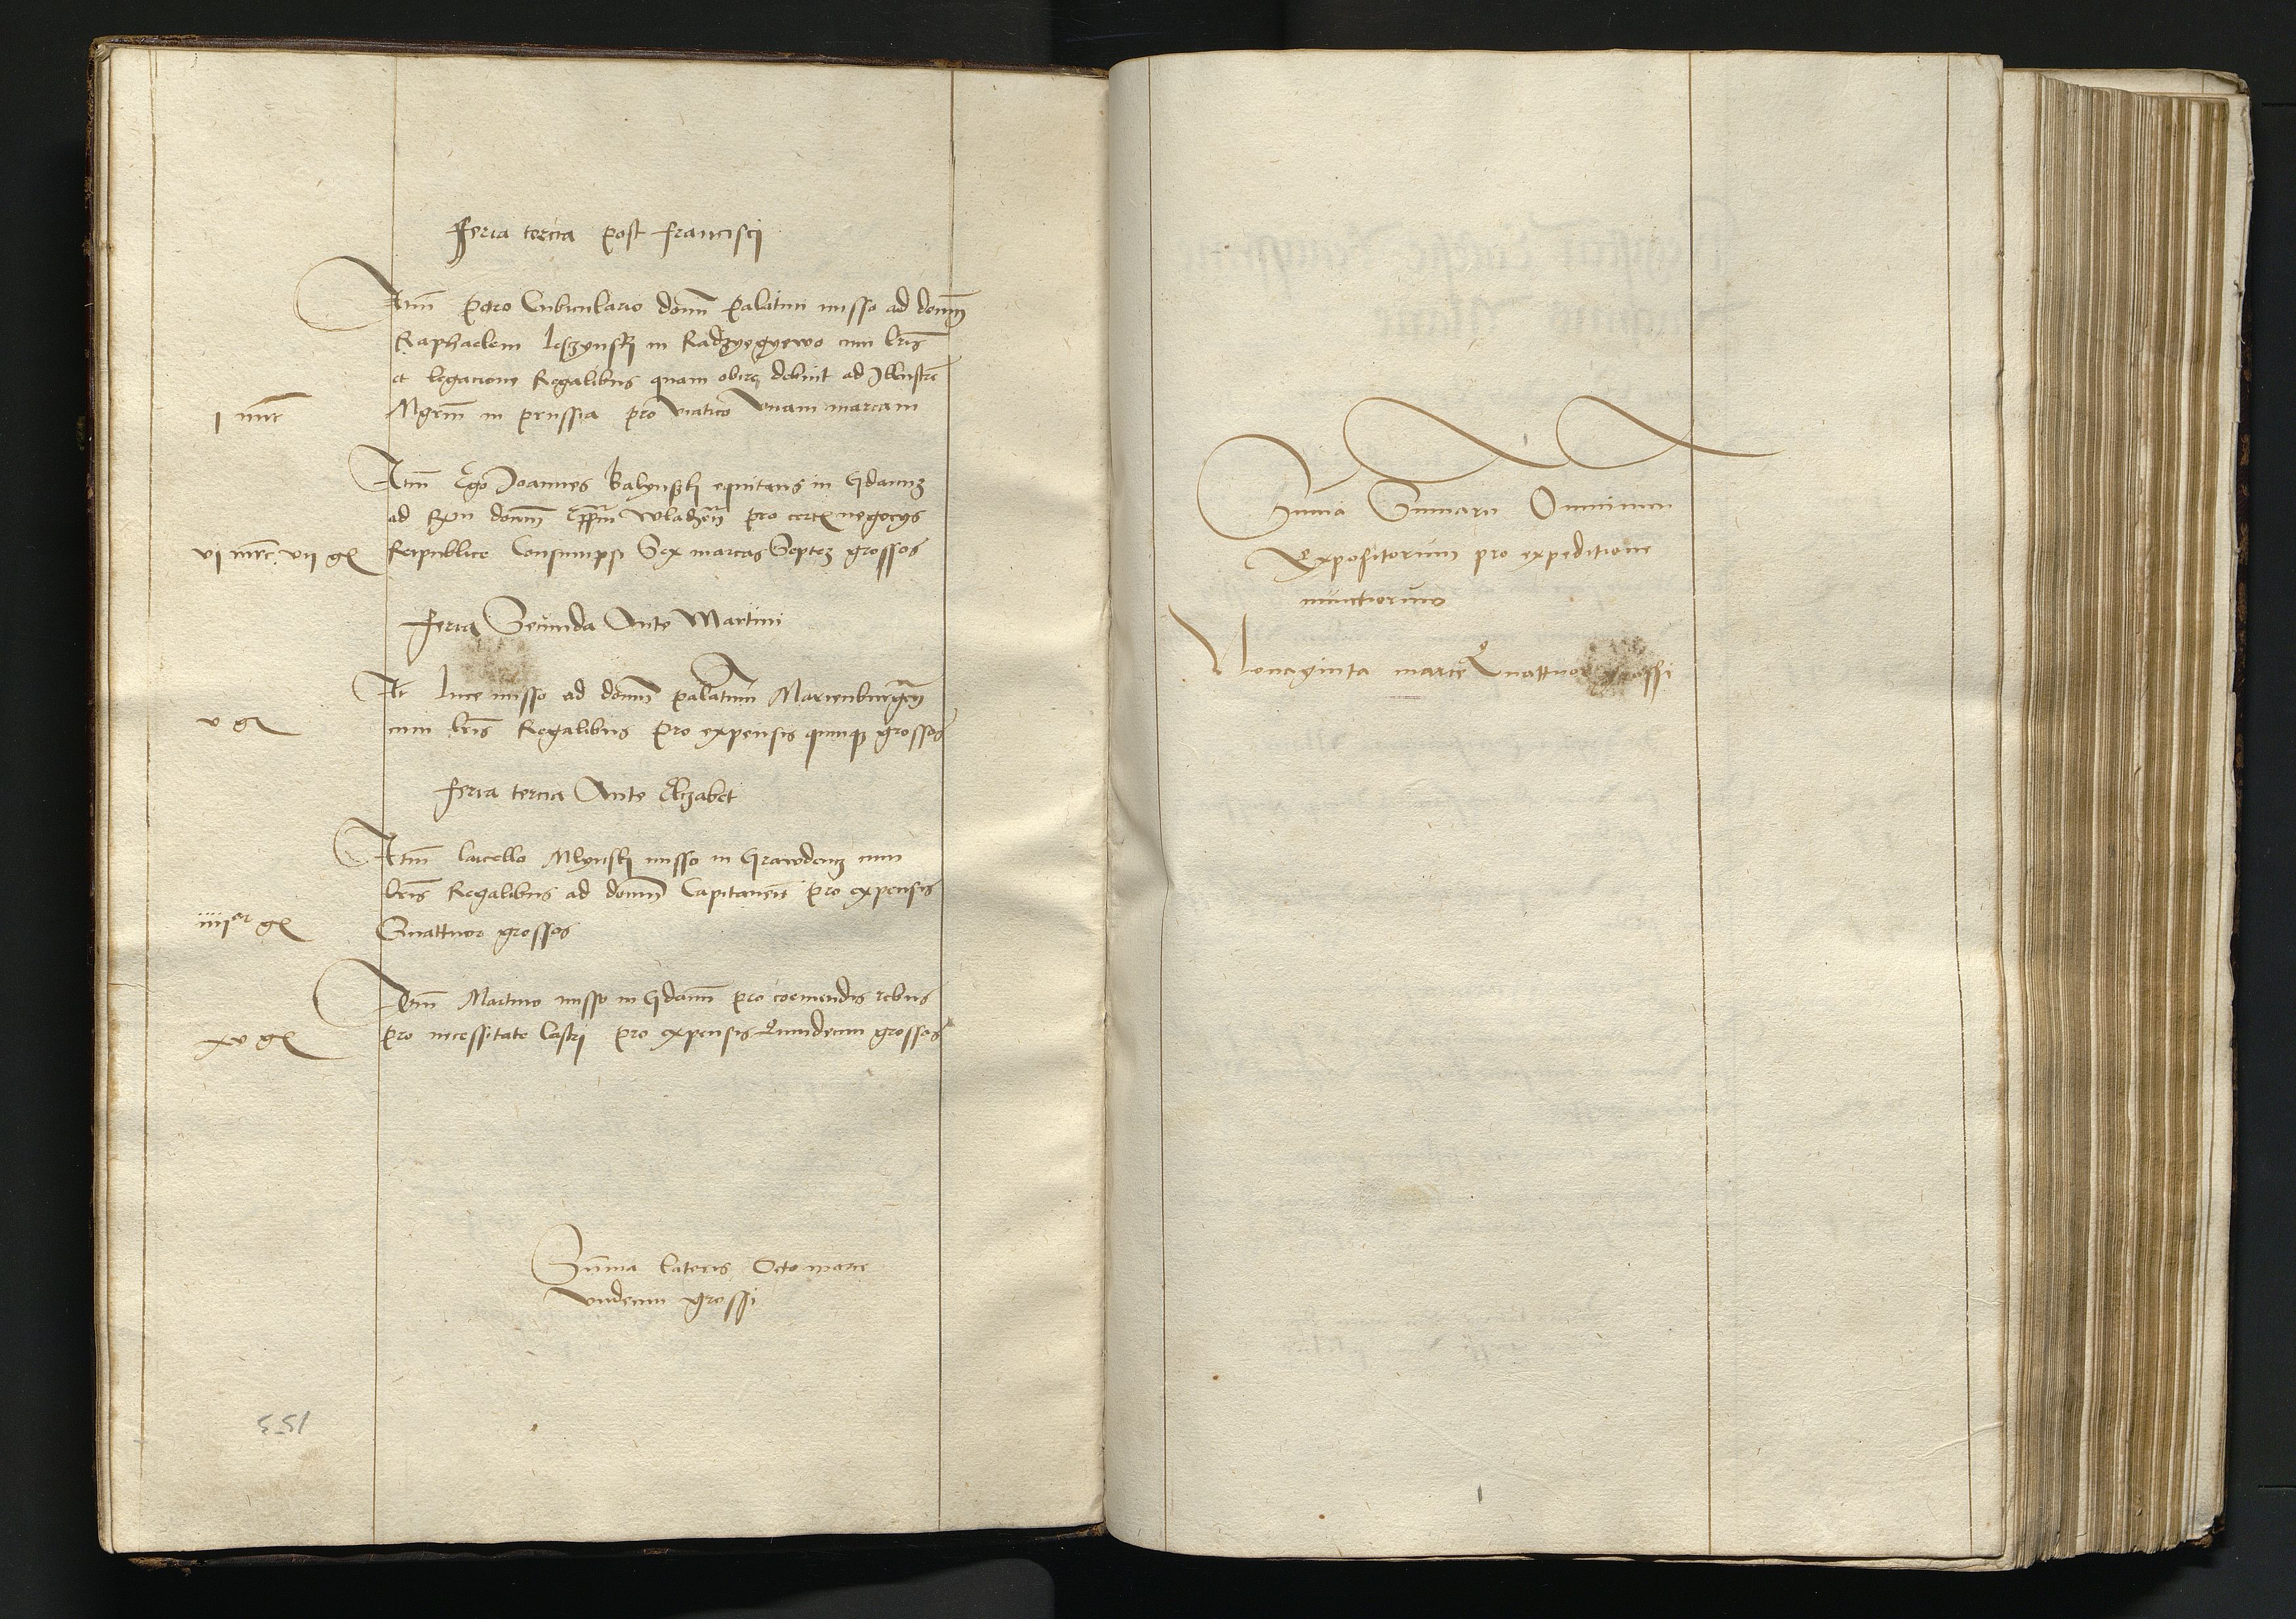 Feria tercia post Francisci
Itm̄ petro Cubiculario domī palatini misso ad domm̄
Raphaelem leszynskij in Radzyegyewo cum lrīs
et legacione Regalibus quam obire debuit ad Illustrē
Mgrm̄ in prussia pro viatico vnam marcam
i mrc̄
Itm̄ Ego Joannes Balynskj equitans in Gdanū
ad Rm̄ domm̄ Epp̄m wladn̄ pro certis negocys
Reipublice Consumpsi Sex marcas Septē grossos
vi mrc̄ vii gr
feria Secunda Ante Martini
It̄ luce misso ad domm̄ palatinū Marienburgn̄
cum lrīs Regalibus pro expensis quinqȝ grossos
v gr
feria tercia Ante Elizabet
Itm̄ laicello Mlynskj misso in Grawdencz cum
lrīs Regalibus ad domm̄ Capitaneū pro expensis
Quattuor grossos
iiiior gr
Itm̄ Martino misso in Gdanū pro coemendis rebus
pro necessitate Castrj pro expensis Quindecim grossos
xv gr
Sum̄a lateris Octo marce
vndecim grossi
155
Sum̄a Sum̄aru Omnium
Expositorum pro expeditione
nunctiorum
Nonaginta marce Quattuor grossi